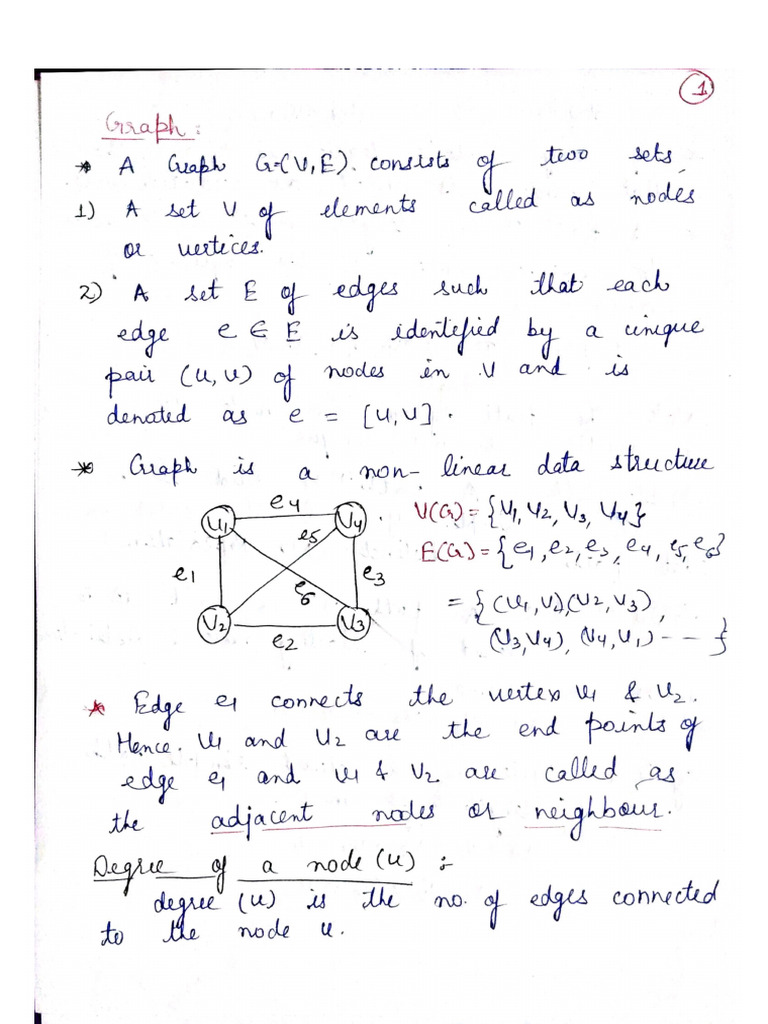 1
Graph:
* A Graph G=(V,E). consists of two sets
1) A set V of elements called as nodes
or vertices.
2) A set E of edges such that each
edge e ∈ E is identified by a unique
pair (u,v) of nodes in V and is
denoted as e = [u,v].
* Graph is a non-linear data structure
e4
V1 V4
e5
e1 e3
e6
V2 V3
e2
V(G) = {V1, V2, V3, V4}
E(G) = {e1, e2, e3, e4, e5, e6}
= {(V1,V2)(V2,V3),
(V3,V4), (V4,V1) - - - }
* Edge e1 connects the vertex V1 & V2.
Hence. V1 and V2 are the end points of
edge e1 and V1 & V2 are called as
the adjacent nodes or neighbour.
Degree of a node (u) :-
degree (u) is the no. of edges connected
to the node u.